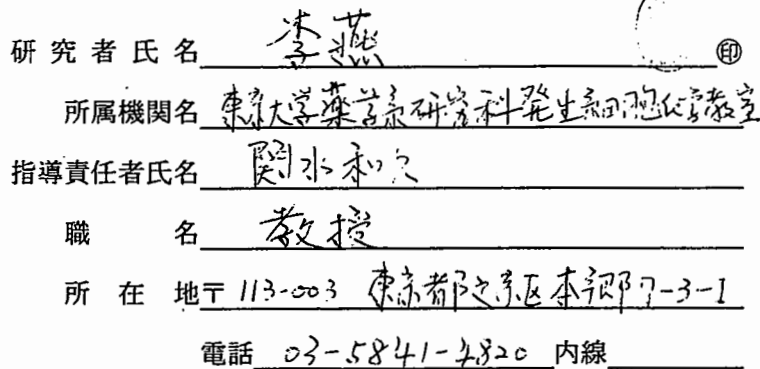 研究者氏名 李燕 ㊞
所属機関名 東京大学薬学系研究科発生細胞化学教室
指導責任者氏名 関水和久
職 名 教授
所 在 地 〒113-003 東京都文京区本郷7-3-1
電話 03-5841-4820 内線